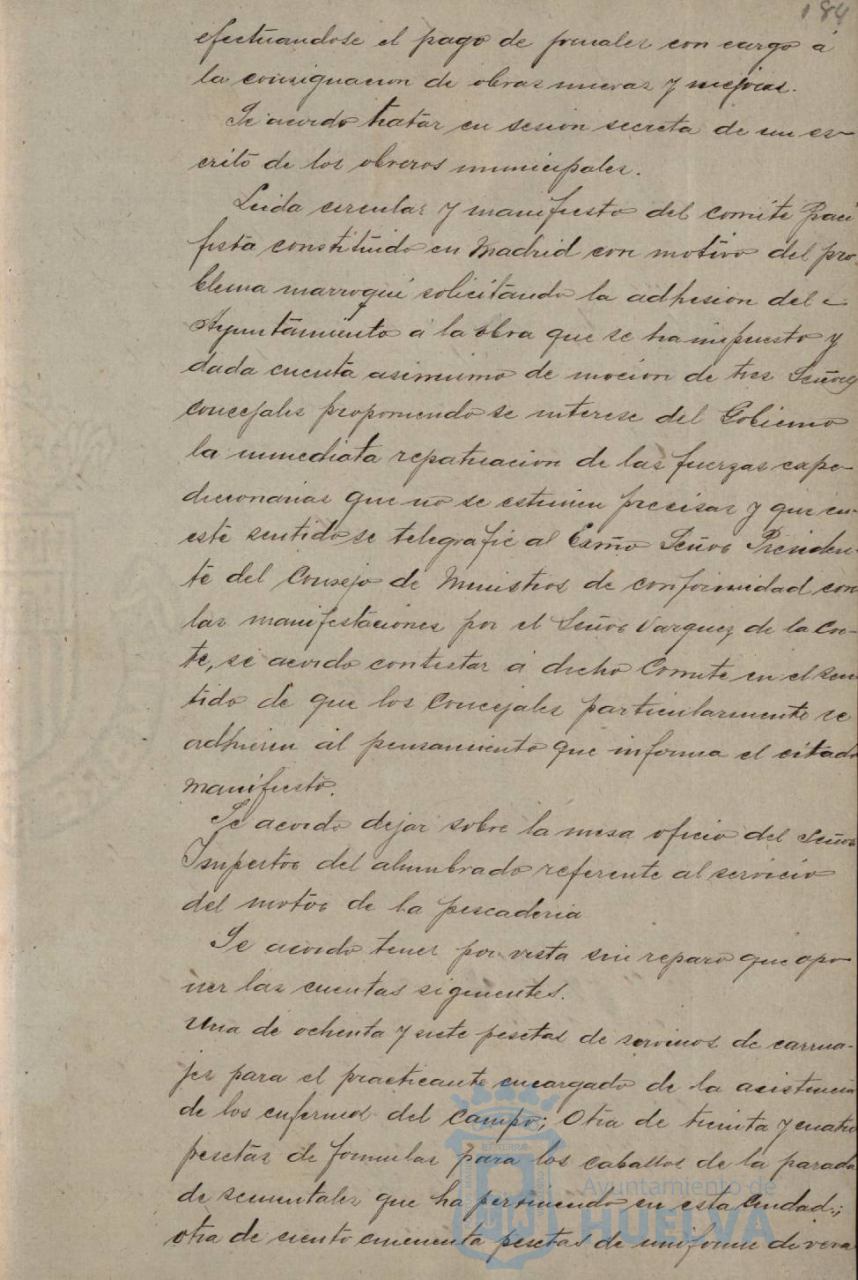 184
efectuandose el pago de jornales con cargo á
la consignacion de obras nuevas y mejoras.
Se acordo tratar en sesion secreta de un es-
crito de los obreros municipales.
Leida circular y manifiesto del comite Paci
fista constituido en Madrid con motivo del pro-
blema marroqui solicitando la adhesion del
Ayuntamiento a la obra que se ha impuesto y
dada cuenta asimismo de mocion de tres Señores
concejales proponiendo se interese del Gobierno
la inmediata repatriacion de las fuerzas expe-
dicionarias que no se estimen precisas y que en
este sentido se telegrafie al Exmo Señor Presiden-
te del Consejo de Ministros de conformidad con
las manifestaciones por el Señor Vazquez de la Cor-
te, se acordo contestar á dicho Comite en el sen
tido de que los Concejales particularmente se
adhieren al pensamiento que informa el citado
manifiesto.
Se acordo dejar sobre la mesa oficio del Señor
Inspector del alumbrado referente al servicio
del motor de la pescaderia
Se acordo tener por vista sin reparo que opo
ner las cuentas siguientes.
Una de ochenta y siete pesetas de servicios de carrua-
jes para el practicante encargado de la asistencia
de los enfermos del Campo; Otra de treinta y cuatro
pesetas de formulas para los caballos de la parada
de sementales que ha permanecido en esta Ciudad;
otra de ciento cincuenta pesetas de uniforme de vera
Ayuntamiento de
HUELVA